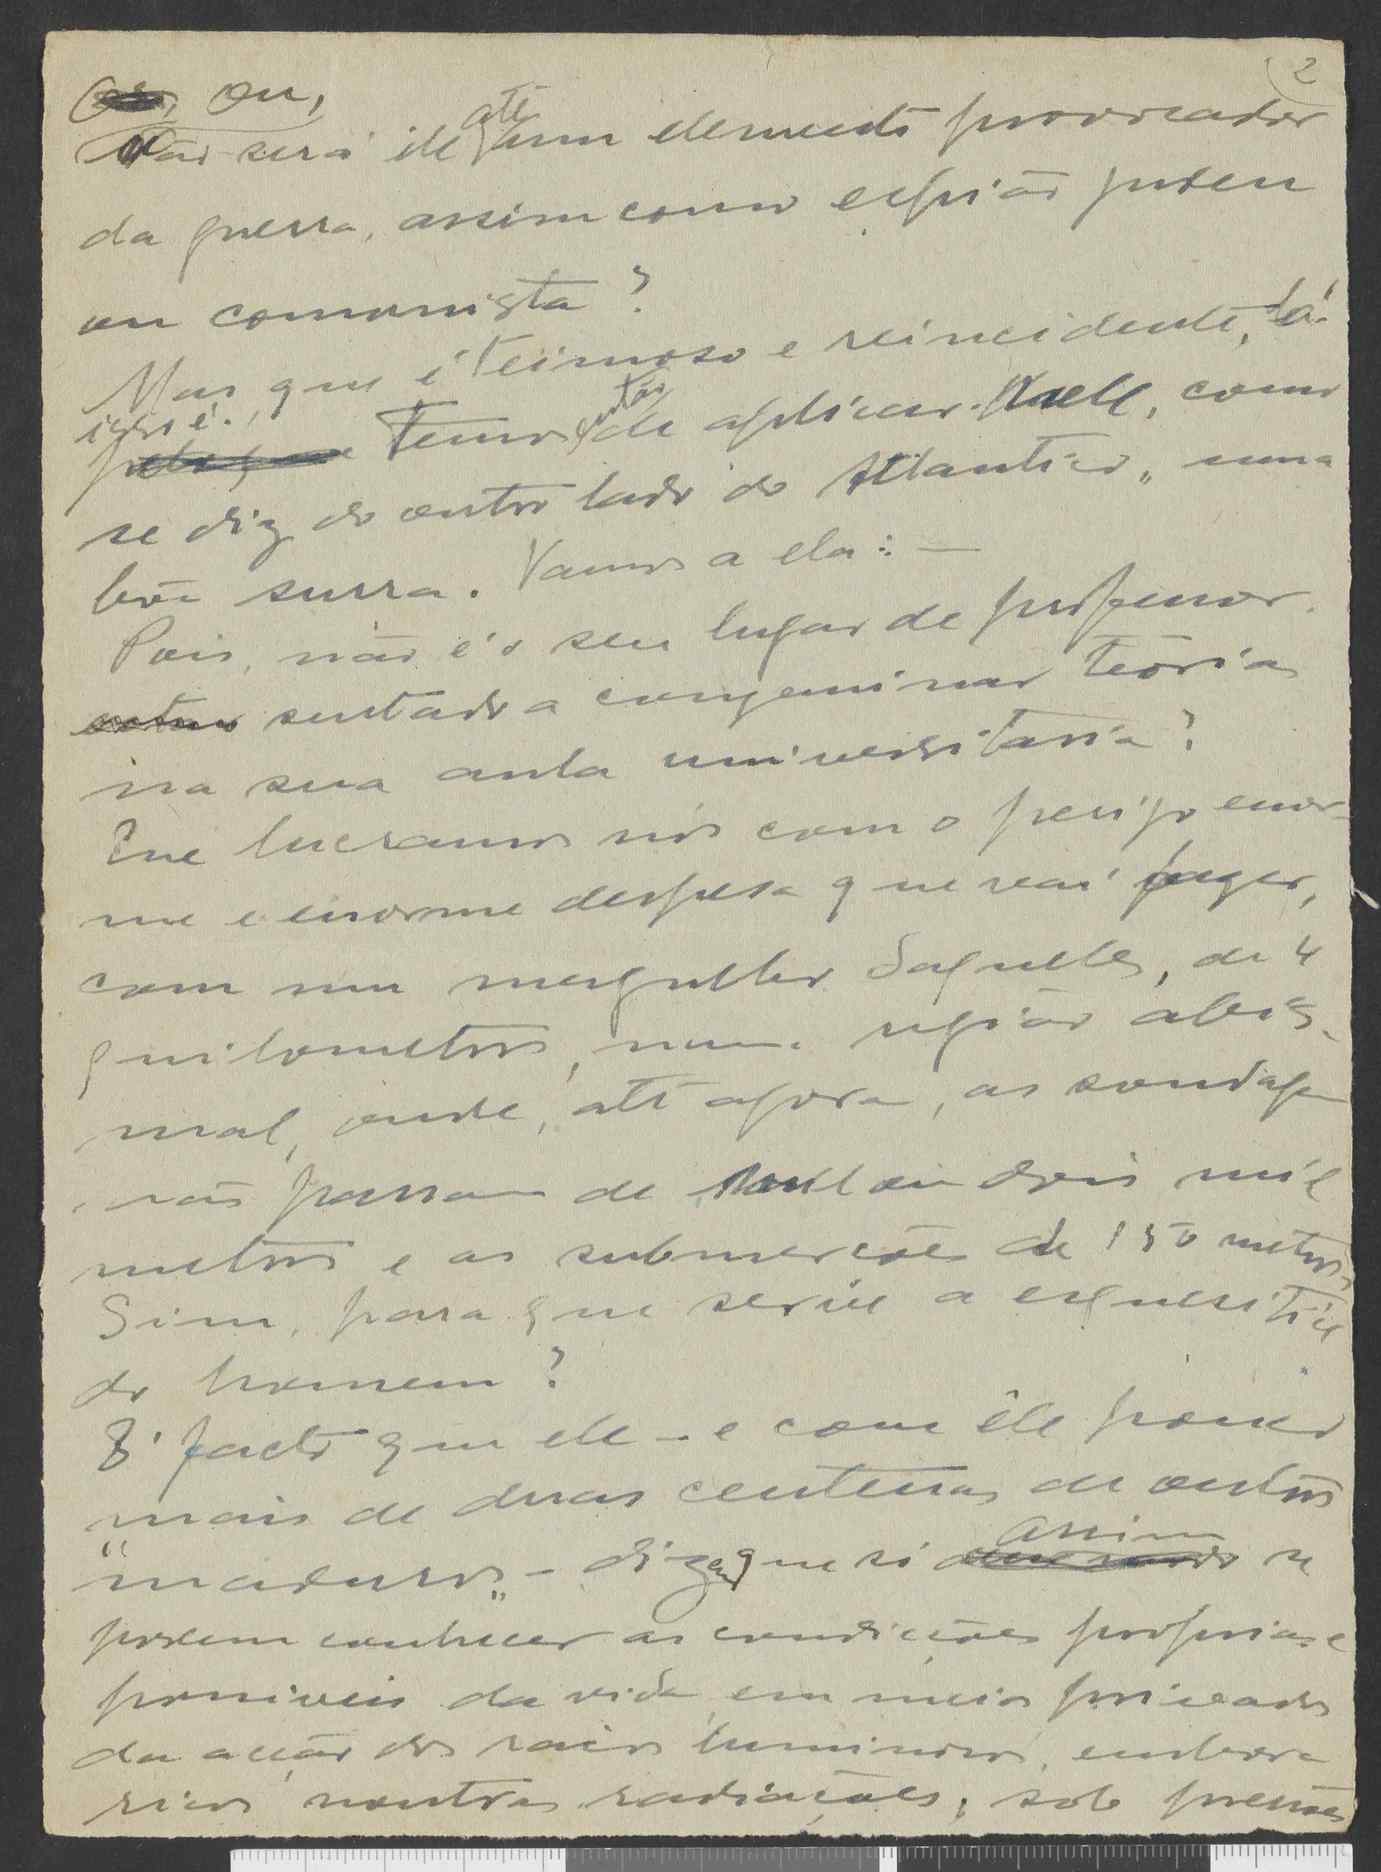 2
Ou, ou,
Não será ele até um elemento provocador
da guerra, assim como espião
ou comunista?
Mas, que é teimoso e reincidente, lá
isso é.
pelo que Temos então de aplicar-lhe, como
se diz do outro lado do Atlantico, "uma
boa surra. Vamos a ela: —
Pois, não é o seu lugar de professor
estar sentado a congeminar teorias
na sua aula universitaria?
Que lucramos nós com o perigo enor-
me e enorme despesa que vai fazer,
com um mergulho daqueles, de 4
quilometros, numa região abis-
mal, onde, até agora, as sondagens
não passam de mil ou dois mil
metros e as submerções de 150 metros,
Sim, para que serve a esquisitice
do homem?
É facto que ele - e com êle pouco
mais de duas centenas de outros
"maduros" - dizem que só assim se
podem conhecer as condicções proprias e
possiveis da vida, em meios privados
da acção dos raios luminosos, embora
ricos noutras radiações, sob pressões